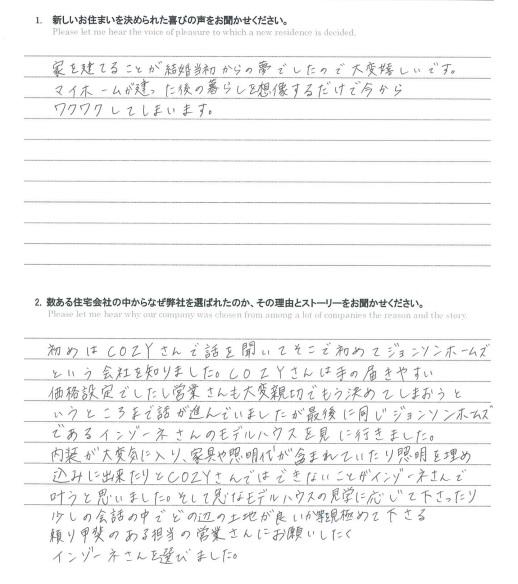 1. 新しいお住まいを決められた喜びの声をお聞かせください。
Please let me hear the voice of pleasure to which a new residence is decided.
家を建てることが結婚当初からの夢でしたので大変嬉しいです。
マイホームが建った後の暮らしを想像するだけで今から
ワクワクしてしまいます。
2. 数ある住宅会社の中からなぜ弊社を選ばれたのか、その理由とストーリーをお聞かせください。
Please let me hear why our company was chosen from among a lot of companies the reason and the story.
初めはCOZYさんで話を聞いてそこで初めてジョンソンホームズ
という会社を知りました。COZYさんは手の届きやすい
価格設定でしたし営業さんも大変親切でもう決めてしまおうと
いうところまで話が進んでいましたが最後に同じジョンソンホームズ
であるインゾーネさんのモデルハウスを見に行きました。
内装が大変気に入り、家具や照明代が含まれていたり照明を埋め
込みに出来たりとCOZYさんではできないことがインゾーネさんで
叶うと思いました。そして急なモデルハウスの見学に応じて下さったり
少しの会話の中でどの辺の土地が良いか見極めて下さる
頼り甲斐のある担当の営業さんにお願いしたく
インゾーネさんを選びました。